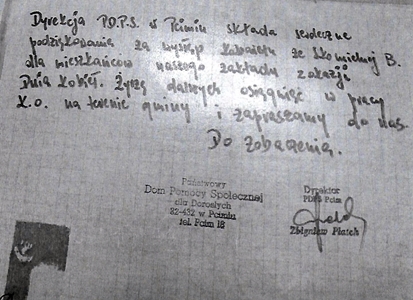 Dyrekcja P.D.P.S. w Pcimiu składa serdeczne
podziękowania za występ kabaretu ze Skomielnej B.
dla mieszkańców naszego zakładu z okazji
Dnia Kobiet. Życzę dalszych osiągnięć w pracy
K.O. na terenie gminy i zapraszamy do nas.
Do zobaczenia.
Państwowy
Dom Pomocy Społecznej
dla Dorosłych
32-432 w Pcimiu
tel. Pcim 18
Dyrektor
PDPS Pcim
Zbigniew Płatek